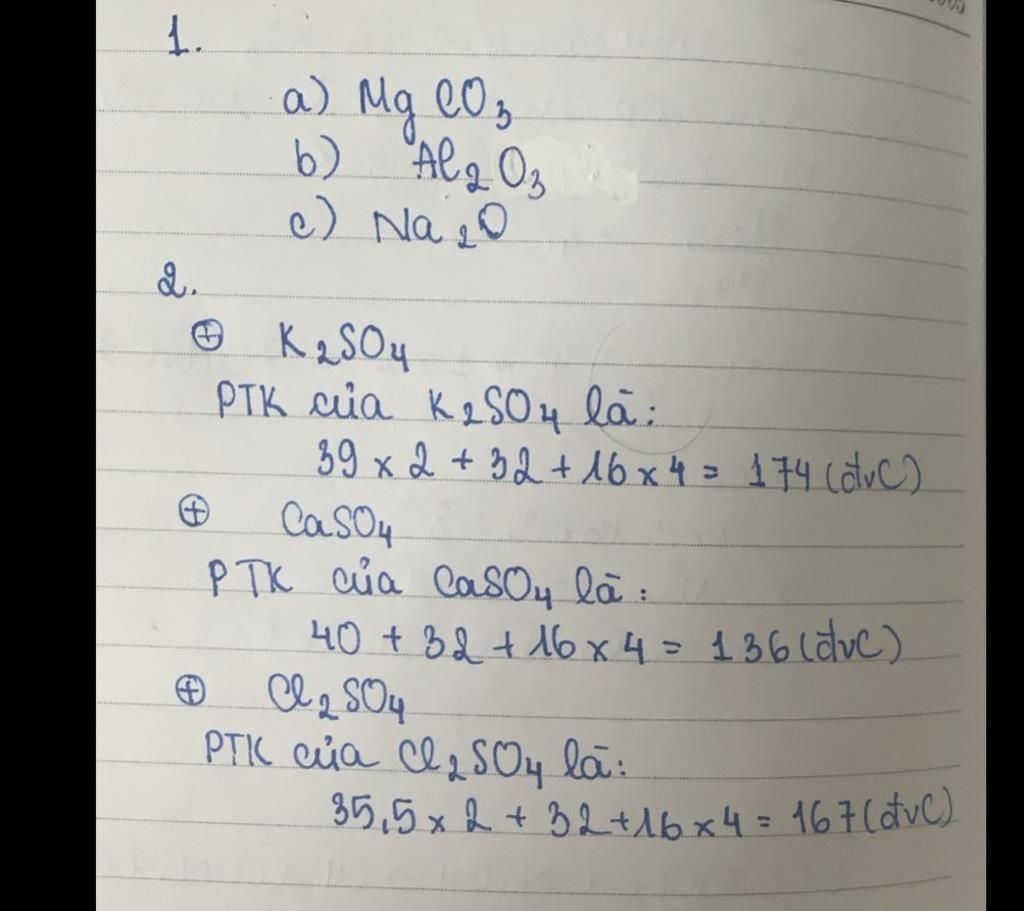 1.
a) MgCO₃
b) Al₂O₃
c) Na₂O
2.
⊕ K₂SO₄
PTK của K₂SO₄ là:
39 x 2 + 32 + 16 x 4 = 174 (đvC)
⊕ CaSO₄
PTK của CaSO₄ là:
40 + 32 + 16 x 4 = 136 (đvC)
⊕ Cl₂SO₄
PTK của Cl₂SO₄ là:
35,5 x 2 + 32 + 16 x 4 = 167 (đvC)